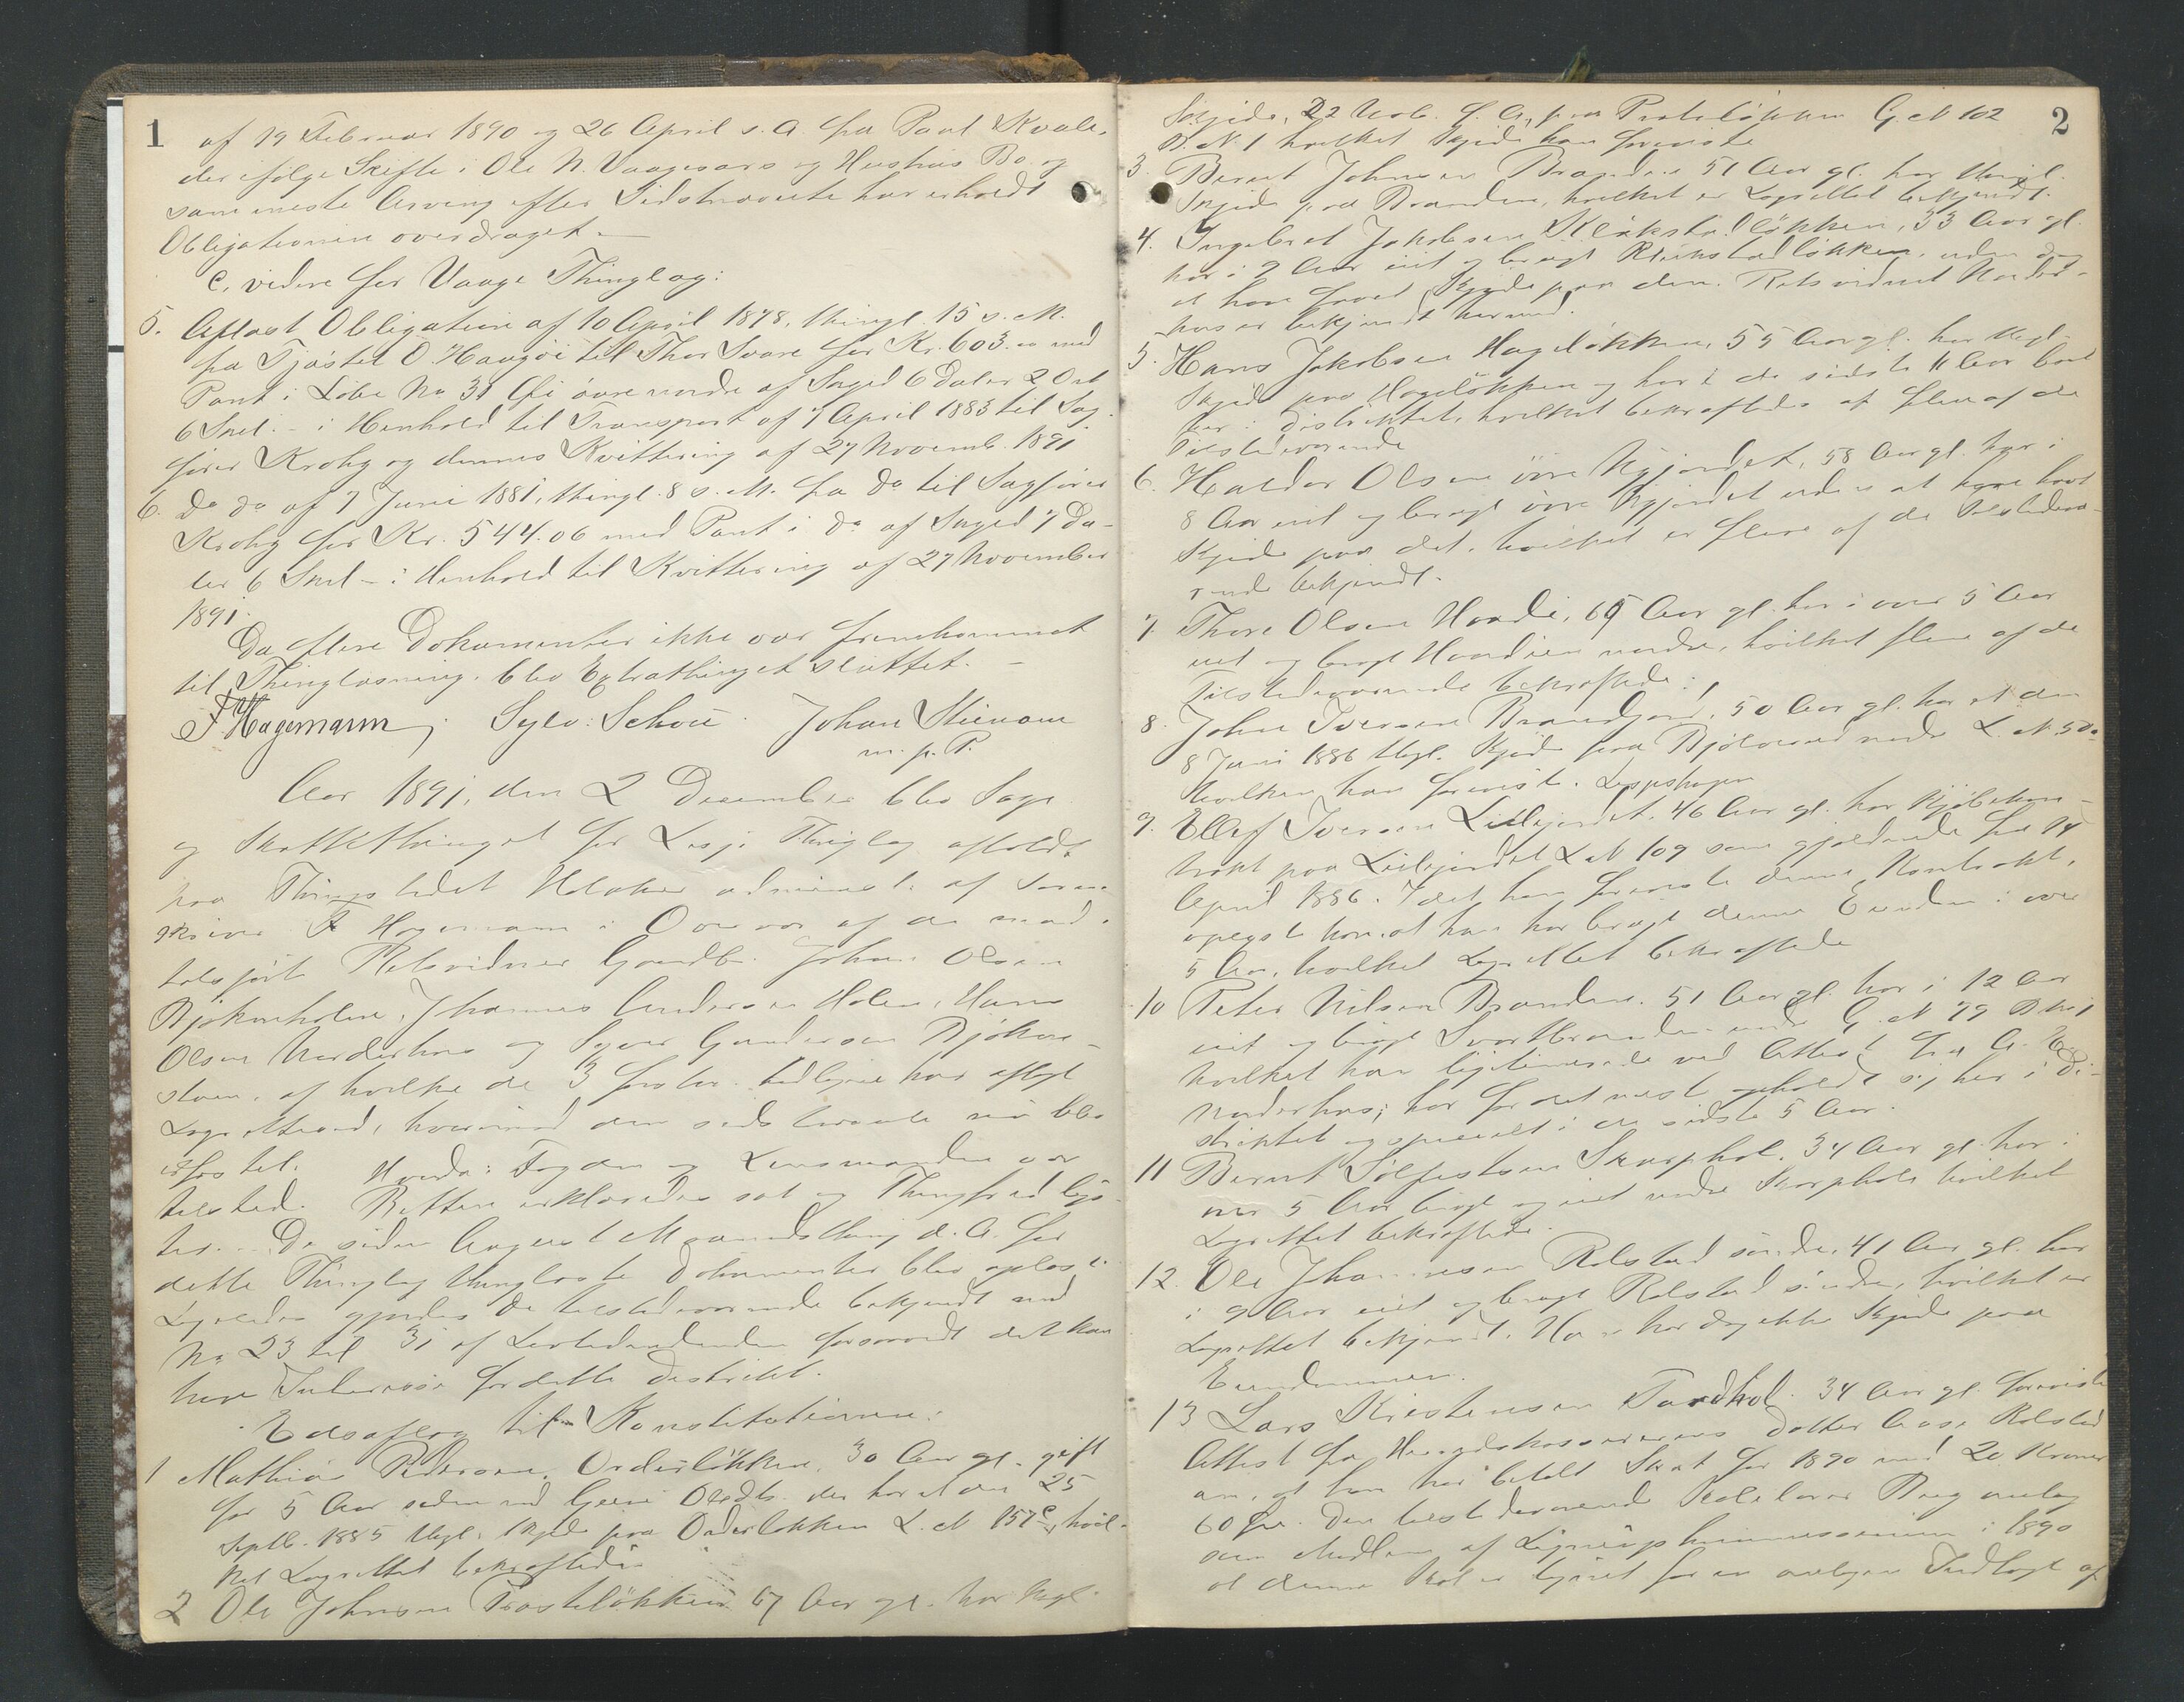 1
af 19 Februar 1890 og 26 April s. A. fra Paul Kvale,
der ifølge Skifte i Ole N. Vaagesars og Hustrus Bo og
som eneste Arving efter Sidstnævnte har erholdt
Obligationen overdraget.
C, videre for Vaage Thinglag:
5. Aflæst Obligation af 10 April 1878, thingl. 15 s. M.
fra Tjøstel O. Haugøi til Thor Svare for Kr. 603.00 med
Pant i Løbe No 31 øvre nordre af Skyld 6 Daler 2 Ort
6 Skil. - i Henhold til Transport af 7 April 1883 til Sag-
fører Krohg og dennes Kvittering af 27 Novemb. 1891
6. do do af 7 Juni 1881, thingl. 8 s. M. fra do til Sagfører
Krohg for Kr. 544.06 med Pant i do af Skyld 7 Da-
ler 6 Skil - i Henhold til Kvittering af 27 November
1891.
Da flere Dokumenter ikke var fremkommet
til Thinglæsning, blev Extrathinget sluttet. -
F. Hagemann, Sylv: Schou. Johan Stienane
m. p. P.
Aar 1891, den 2 December blev Sage
og Skattethinget for Lesje Thinglag afholdt
paa Thingstedet Holaker administr. af Soren-
skriver F Hagemann i Overvær af de med-
tolsførte Retsvidner Gaardbr. Johan Olsen
Bjøkneholen, Johannes Andersen Holen, Hans
Olsen Norderhus og Syver Gundersen Bjøkne-
stuen, af hvilke de 3 første tidligere har aflagt
Lagrettesed, hvorimod den sidstnævnte nu blev
edfæstet. Fogden og Lensmanden var
tilsted. Retten erklæredes sat og Thingfred lys-
tes. - De siden August Maanedsthing d. A. for
dette Thinglag thinglæste Dokumenter blev oplæst.
Ligeledes gjordes de tilstedeværende bekjendt med
No 23 til 31 af Lovtidenden forsaavidt det kan
have Interesse for dette Distrikt.
Edsaflæg til Konstitutionen:
1 Mathias Pedersen Orderløkken, 30 Aar gl. gift
for 5 Aar siden med Olsdtr. der har den 25
Septb. 1885 thgl. Skjøde paa Orderløkken L. N 157c, hvil-
ket Lagrettet bekræftede
2 Ole Johnsen Prosteløkken 67 Aar gl. har thgl.
2
Skjøde, 22 Novb. f. A. paa Prosteløkken G. N 102
B. N. 1 hvilket Skjøde han foreviste
3. Bernt Johnsen Branden 51 Aar gl. har thingl.
Skjøde paa Branden, hvilket er Lagrettet bekjendt.
4. Ingebret Jakobsen Kløkstadløkken, 33 Aar gl.
har i 9 Aar eiet og brugt Kløkstadløkken, uden dog
at have faaet Skjøde paa den. Retsvidnet Norder-
hus er bekjendt hermed.
5. Hans Jakobsen Hageløkken, 55 Aar gl. har thgl.
Skjøde paa Hageløkken og har i de sidste 11 Aar boet
her i Distriktet, hvilket bekræftedes af flere af de
Tilstedeværende
6. Haldor Olsen øvre Nygjordet, 58 Aar gl. har i
8 Aar eiet og brugt øvre Nygjordet uden at have havt
Skjøde paa det, hvilket er flere af de Tilstedevæ-
rende bekjendt.
7. Thore Olsen Hondi, 69 Aar gl. har i over 5 Aar
eiet og brugt Hondien nordre, hvilket flere af de
Tilstedeværende bekræftede.
8. John Iversen Brandjord, 50 Aar gl. har den
8 Juni 1886 thgl. Skjøde paa Bjølverud nordre L. N 50a
hvilken han foreviste. Leppshagen
9. Ellef Iversen Lillejordet, 46 Aar gl. har Kjøbekon-
trakt paa Lillejordet L N 109 som gjældende fra 14
April 1886. Idet han foreviste denne Kontrakt,
opgiver han at han har brugt denne Eiendom i over
5 Aar, hvilket Lagrettet bekræftede
10 Peter Nilsen Branden. 51 Aar gl. har i 12 Aar
eiet og brugt Svartbranden under G. N 79 B N 1
hvilket han legitimerede ved Attest fra A. H.
Norderhus; har fordetmeste opholdt sig her i Di-
striktet og specielt i de sidste 5 Aar.
11 Bernt Sølfestsen Skarphol. 34 Aar gl. har i
over 5 Aar brugt og eiet nedre Skarphol, hvilket
Lagrettet bekræftede.
12. Ole Johannesen Rolstad søndre, 41 Aar gl. har
i 9 Aar eiet og brugt Rolstad søndre, hvilket er
Lagrettet bekjendt. Han har dog ikke Skjøde paa
Eiendommen.
13 Lars Kristensen Tordhol. 34 Aar gl. foreviste
Attest fra Herredskassererens Datter Aase Rolstad
om, at han har betalt Skat for 1890 med 20 Kroner
60 Øre. Den tilstedeværende Kirkesanger Bry oplag
som Medlem af Ligningskommissionen i 1890
at denne Skat er lignet for en antagen Indtægt af